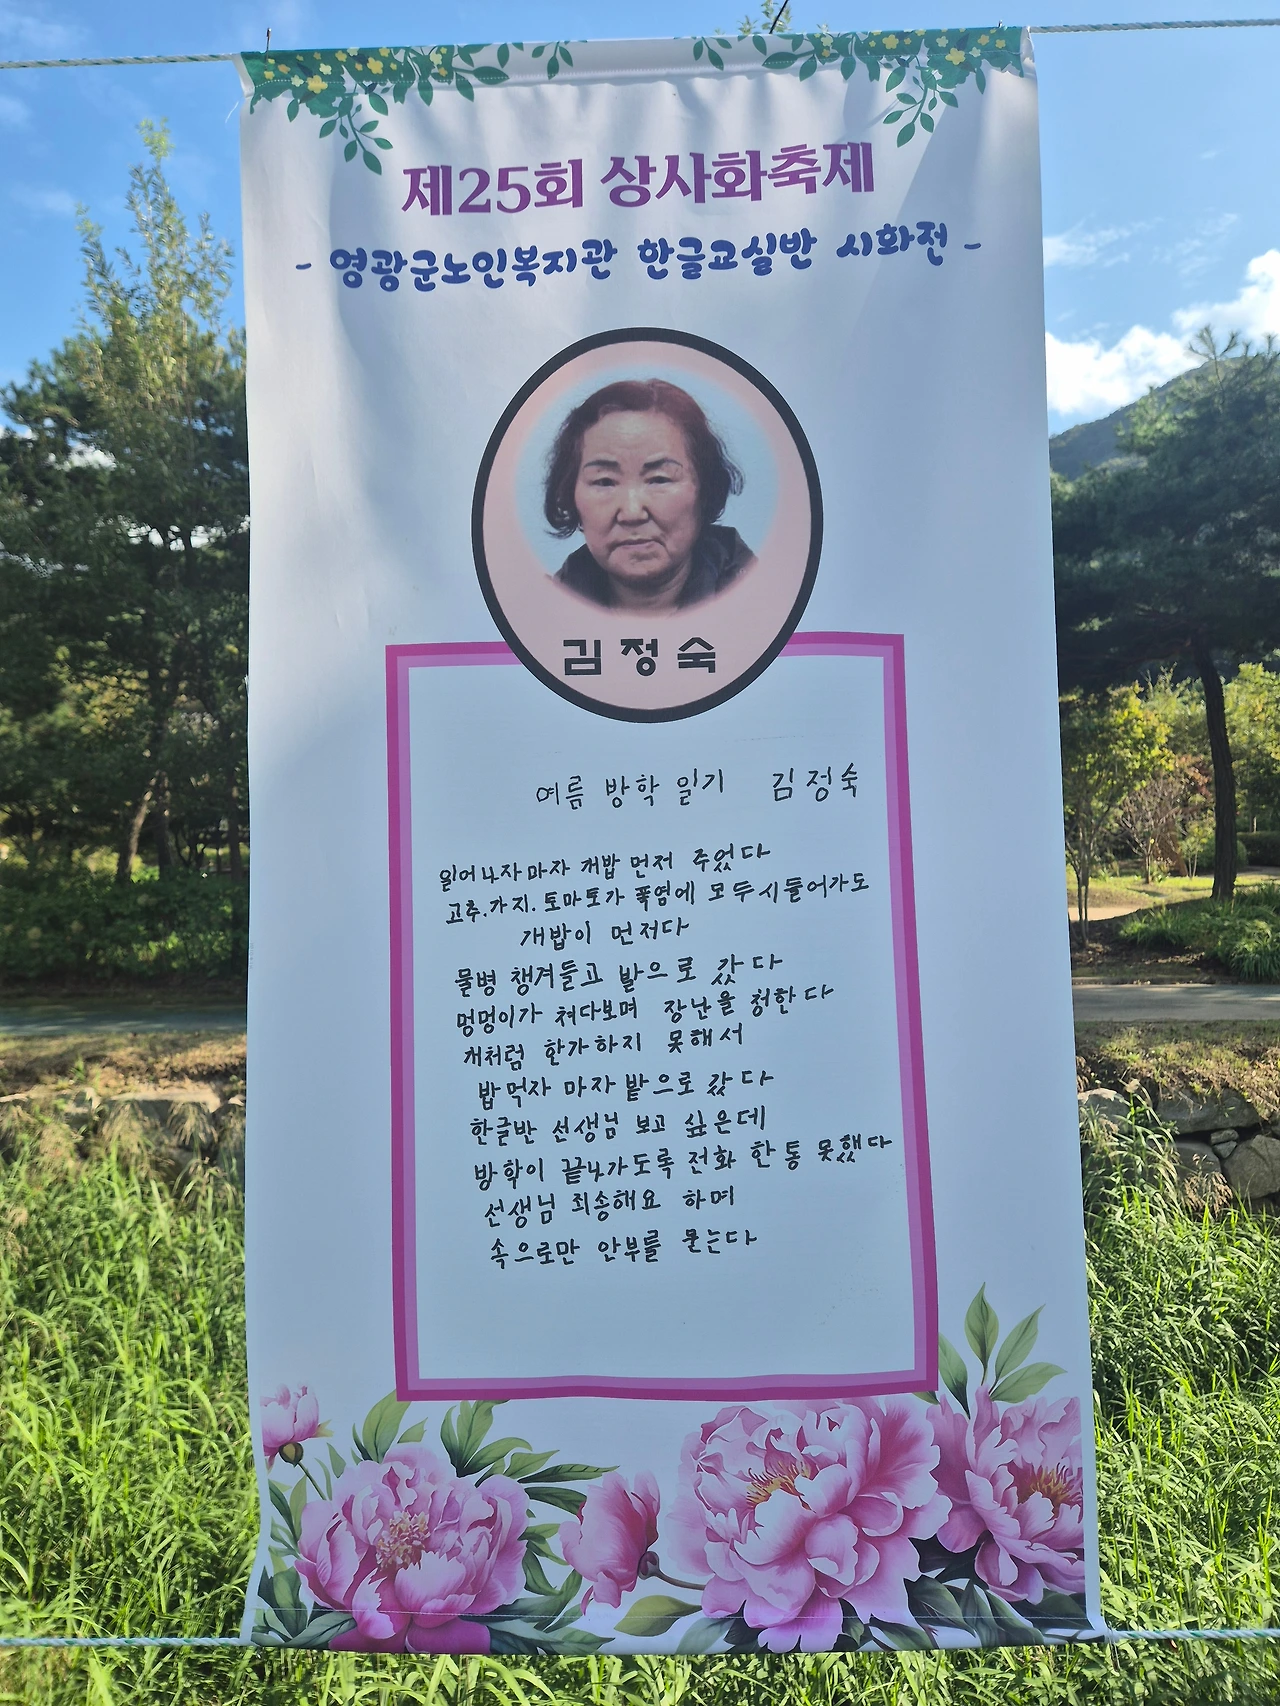 제25회 상사화축제
- 영광군노인복지관 한글교실반 시화전 -
김정숙
여름 방학 일기 김정숙
일어나자마자 개밥 먼저 주었다
고추.가지.토마토가 폭염에 모두시들어가도
개밥이 먼저다
물병 챙겨들고 밭으로 갔다
멍멍이가 쳐다보며 장난을 청한다
개처럼 한가하지 못해서
밥먹자 마자 밭으로 갔다
한글반 선생님 보고 싶은데
방학이 끝나가도록 전화 한통 못했다
선생님 죄송해요 하며
속으로만 안부를 묻는다